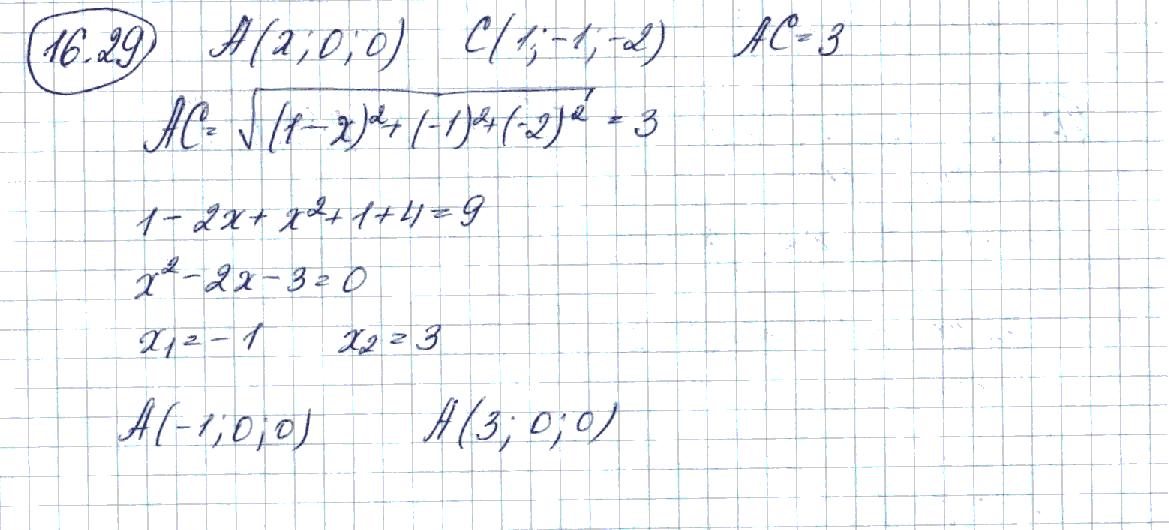 16.29 A(x;0;0) C(1;-1;-2) AC=3
AC=√((1-x)²+(-1)²+(-2)²) = 3
1-2x+x²+1+4=9
x²-2x-3=0
x₁=-1 x₂=3
A(-1;0;0) A(3;0;0)